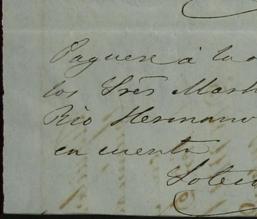 Paguese á la o
los Srēs Mart
Rio Hermano
en cuenta
Sotero